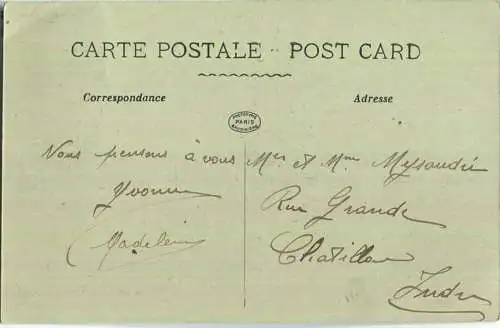 CARTE POSTALE .. POST CARD
Correspondance
Adresse
PARIS
Nous pensons à vous
Yvonne
Madeleine
Mr et Mme
Rue Grande
Chatillon
Indre